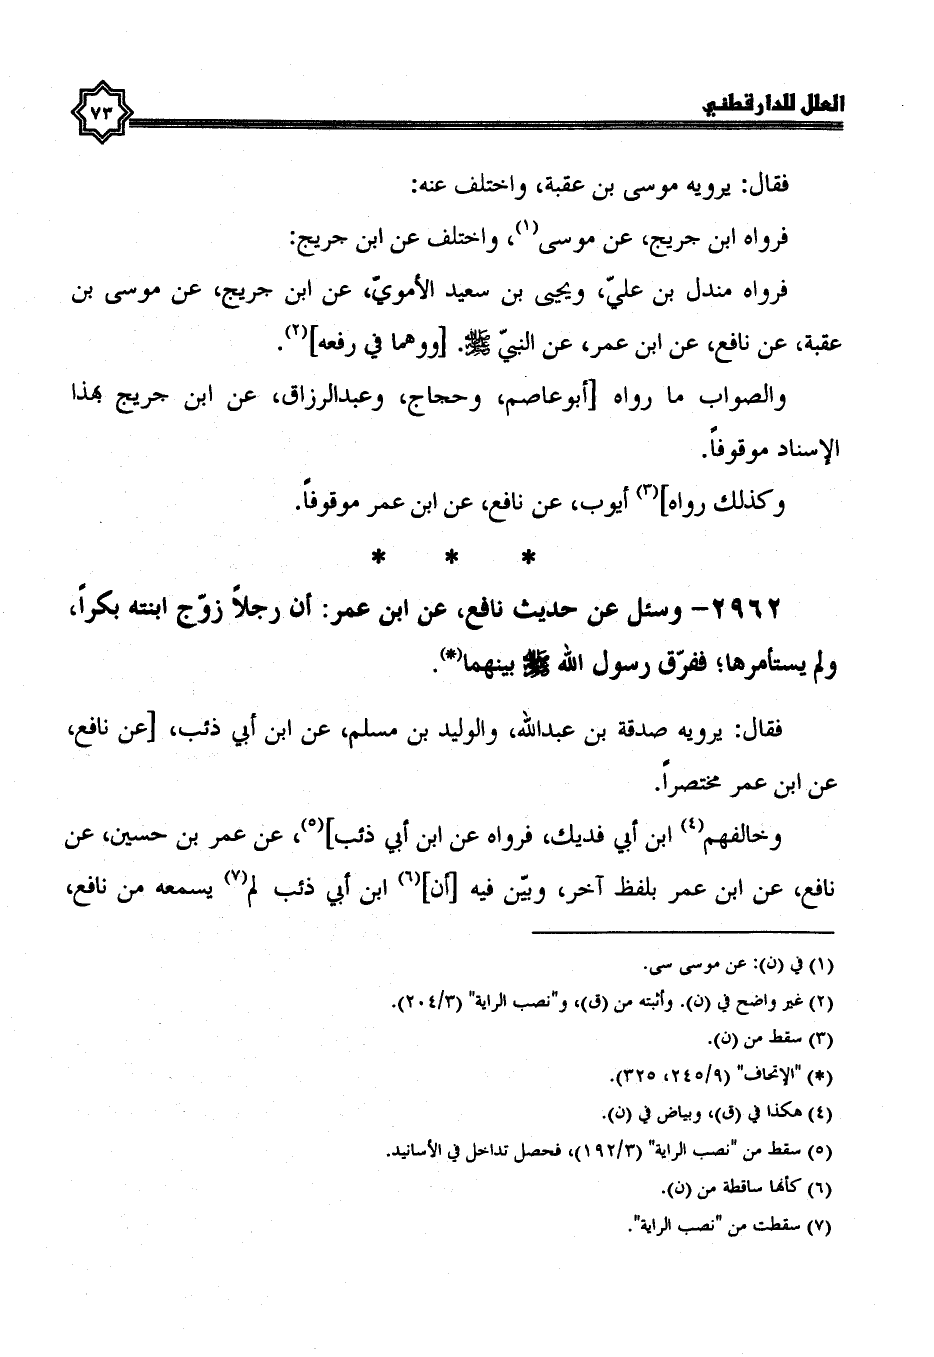 العلل للدارقطني
٧٣
فقال: يرويه موسى بن عقبة، واختلف عنه:
فرواه ابن جريج، عن موسى(١)، واختلف عن ابن جريج:
فرواه مندل بن عليّ، ويحيى بن سعيد الأمويّ، عن ابن جريج، عن موسى بن
عقبة، عن نافع، عن ابن عمر، عن النبيّ ﷺ. [ووهما في رفعه](٢).
والصواب ما رواه [أبوعاصم، وحجاج، وعبدالرزاق، عن ابن جريج بهذا
الإسناد موقوفاً.
وكذلك رواه](٣) أيوب، عن نافع، عن ابن عمر موقوفاً.
* * *
٢٩٦٢- وسئل عن حديث نافع، عن ابن عمر: أن رجلاً زوّج ابنته بكراً،
ولم يستأمرها؛ ففرّق رسول الله ﷺ بينهما(*).
فقال: يرويه صدقة بن عبدالله، والوليد بن مسلم، عن ابن أبي ذئب، [عن نافع،
عن ابن عمر مختصراً.
وخالفهم(٤) ابن أبي فديك، فرواه عن ابن أبي ذئب](٥)، عن عمر بن حسين، عن
نافع، عن ابن عمر بلفظ آخر، وبيّن فيه [أن](٦) ابن أبي ذئب لم(٧) يسمعه من نافع،
(١) في (ن): عن موسى سى.
(٢) غير واضح في (ن). وأثبته من (ق)، و"نصب الراية" (٢٠٤/٣).
(٣) سقط من (ن).
(*) "الإتحاف" (٢٤٥/٩، ٣٢٥).
(٤) هكذا في (ق)، وبياض في (ن).
(٥) سقط من "نصب الراية" (١٩٢/٣)، فحصل تداخل في الأسانيد.
(٦) كأنها ساقطة من (ن).
(٧) سقطت من "نصب الراية".